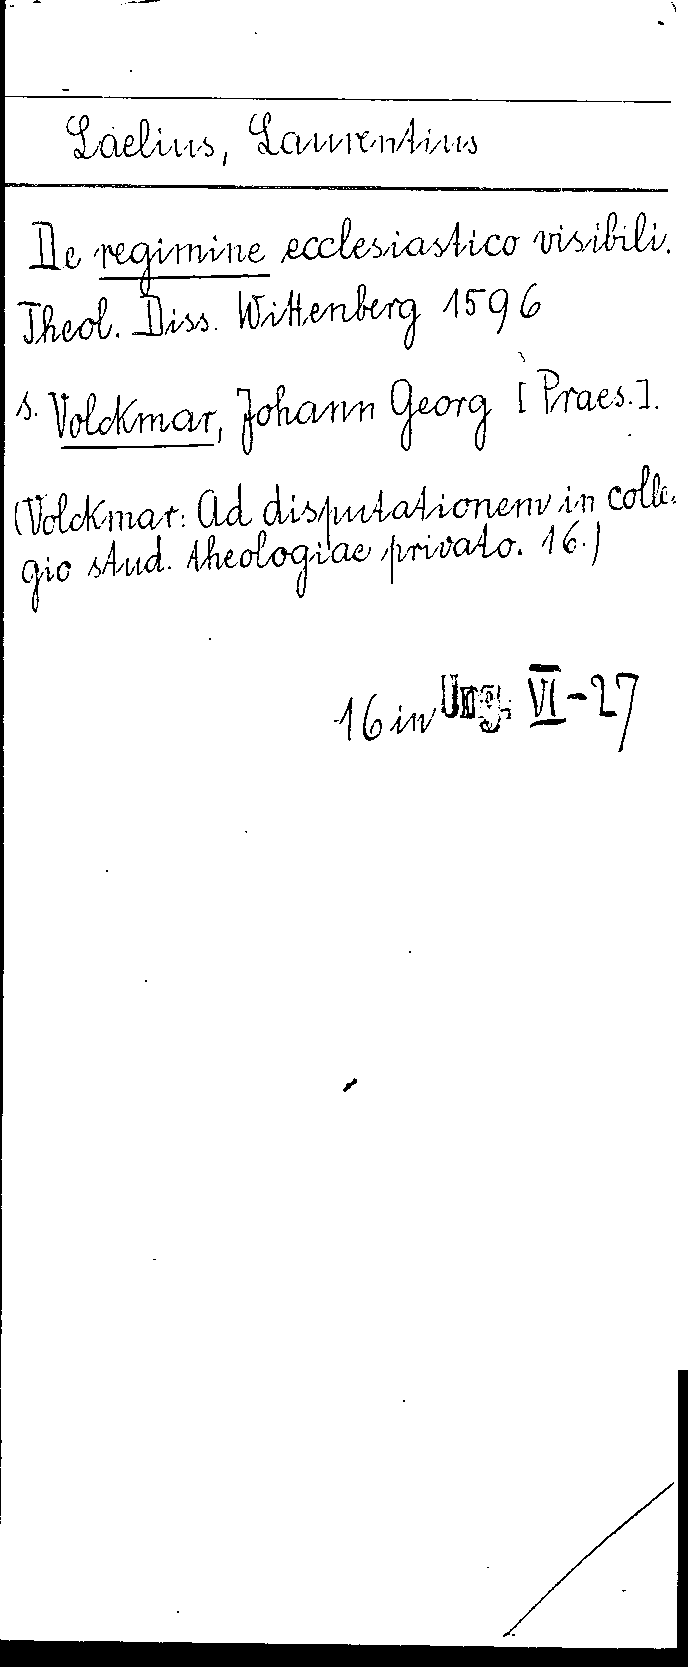 Laelius, Laurentius
De regimine ecclesiastico visibili.
Theol. Diss. Wittenberg 1596
s. Volckmar, Johann Georg [Praes.].
(Volckmar: Ad disputationem in colle-
gio stud. theologiae privato. 16.)
16 in Ung. VI-27